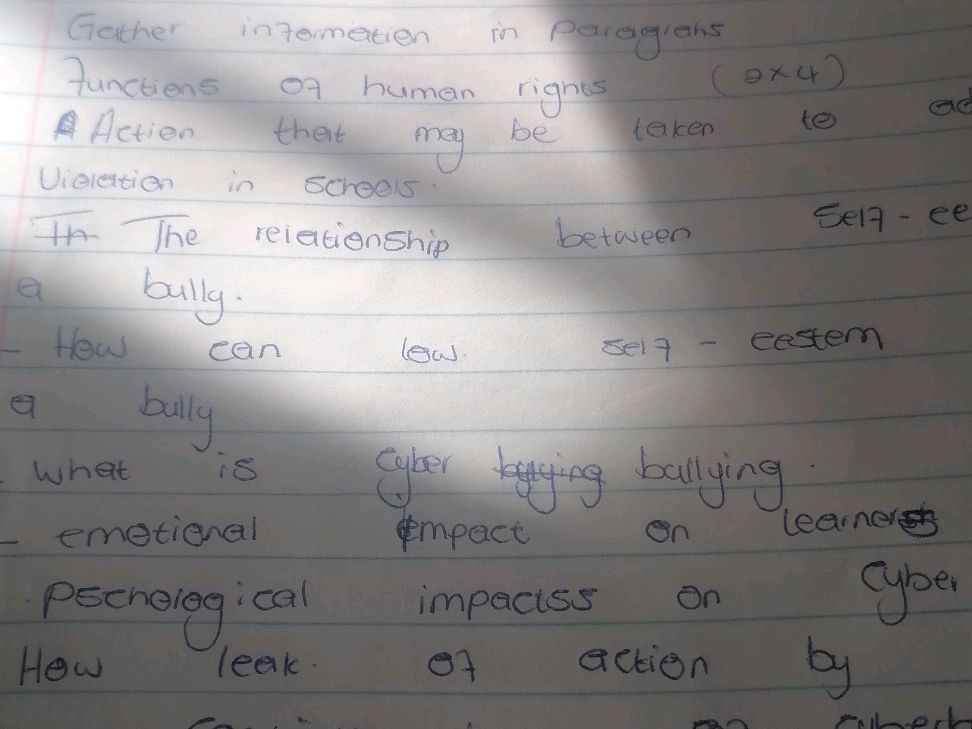 Gather information in Paragrahs
Functions of human rights (2x4)
Action that may be taken to ad
Violation in schools.
The relationship between self - ee
a bully.
- How can low self - eestem
a bully
. what is Cyber bullying.
- emotional impact on learners
. Pschological impactss on Cyber
How leak of action by